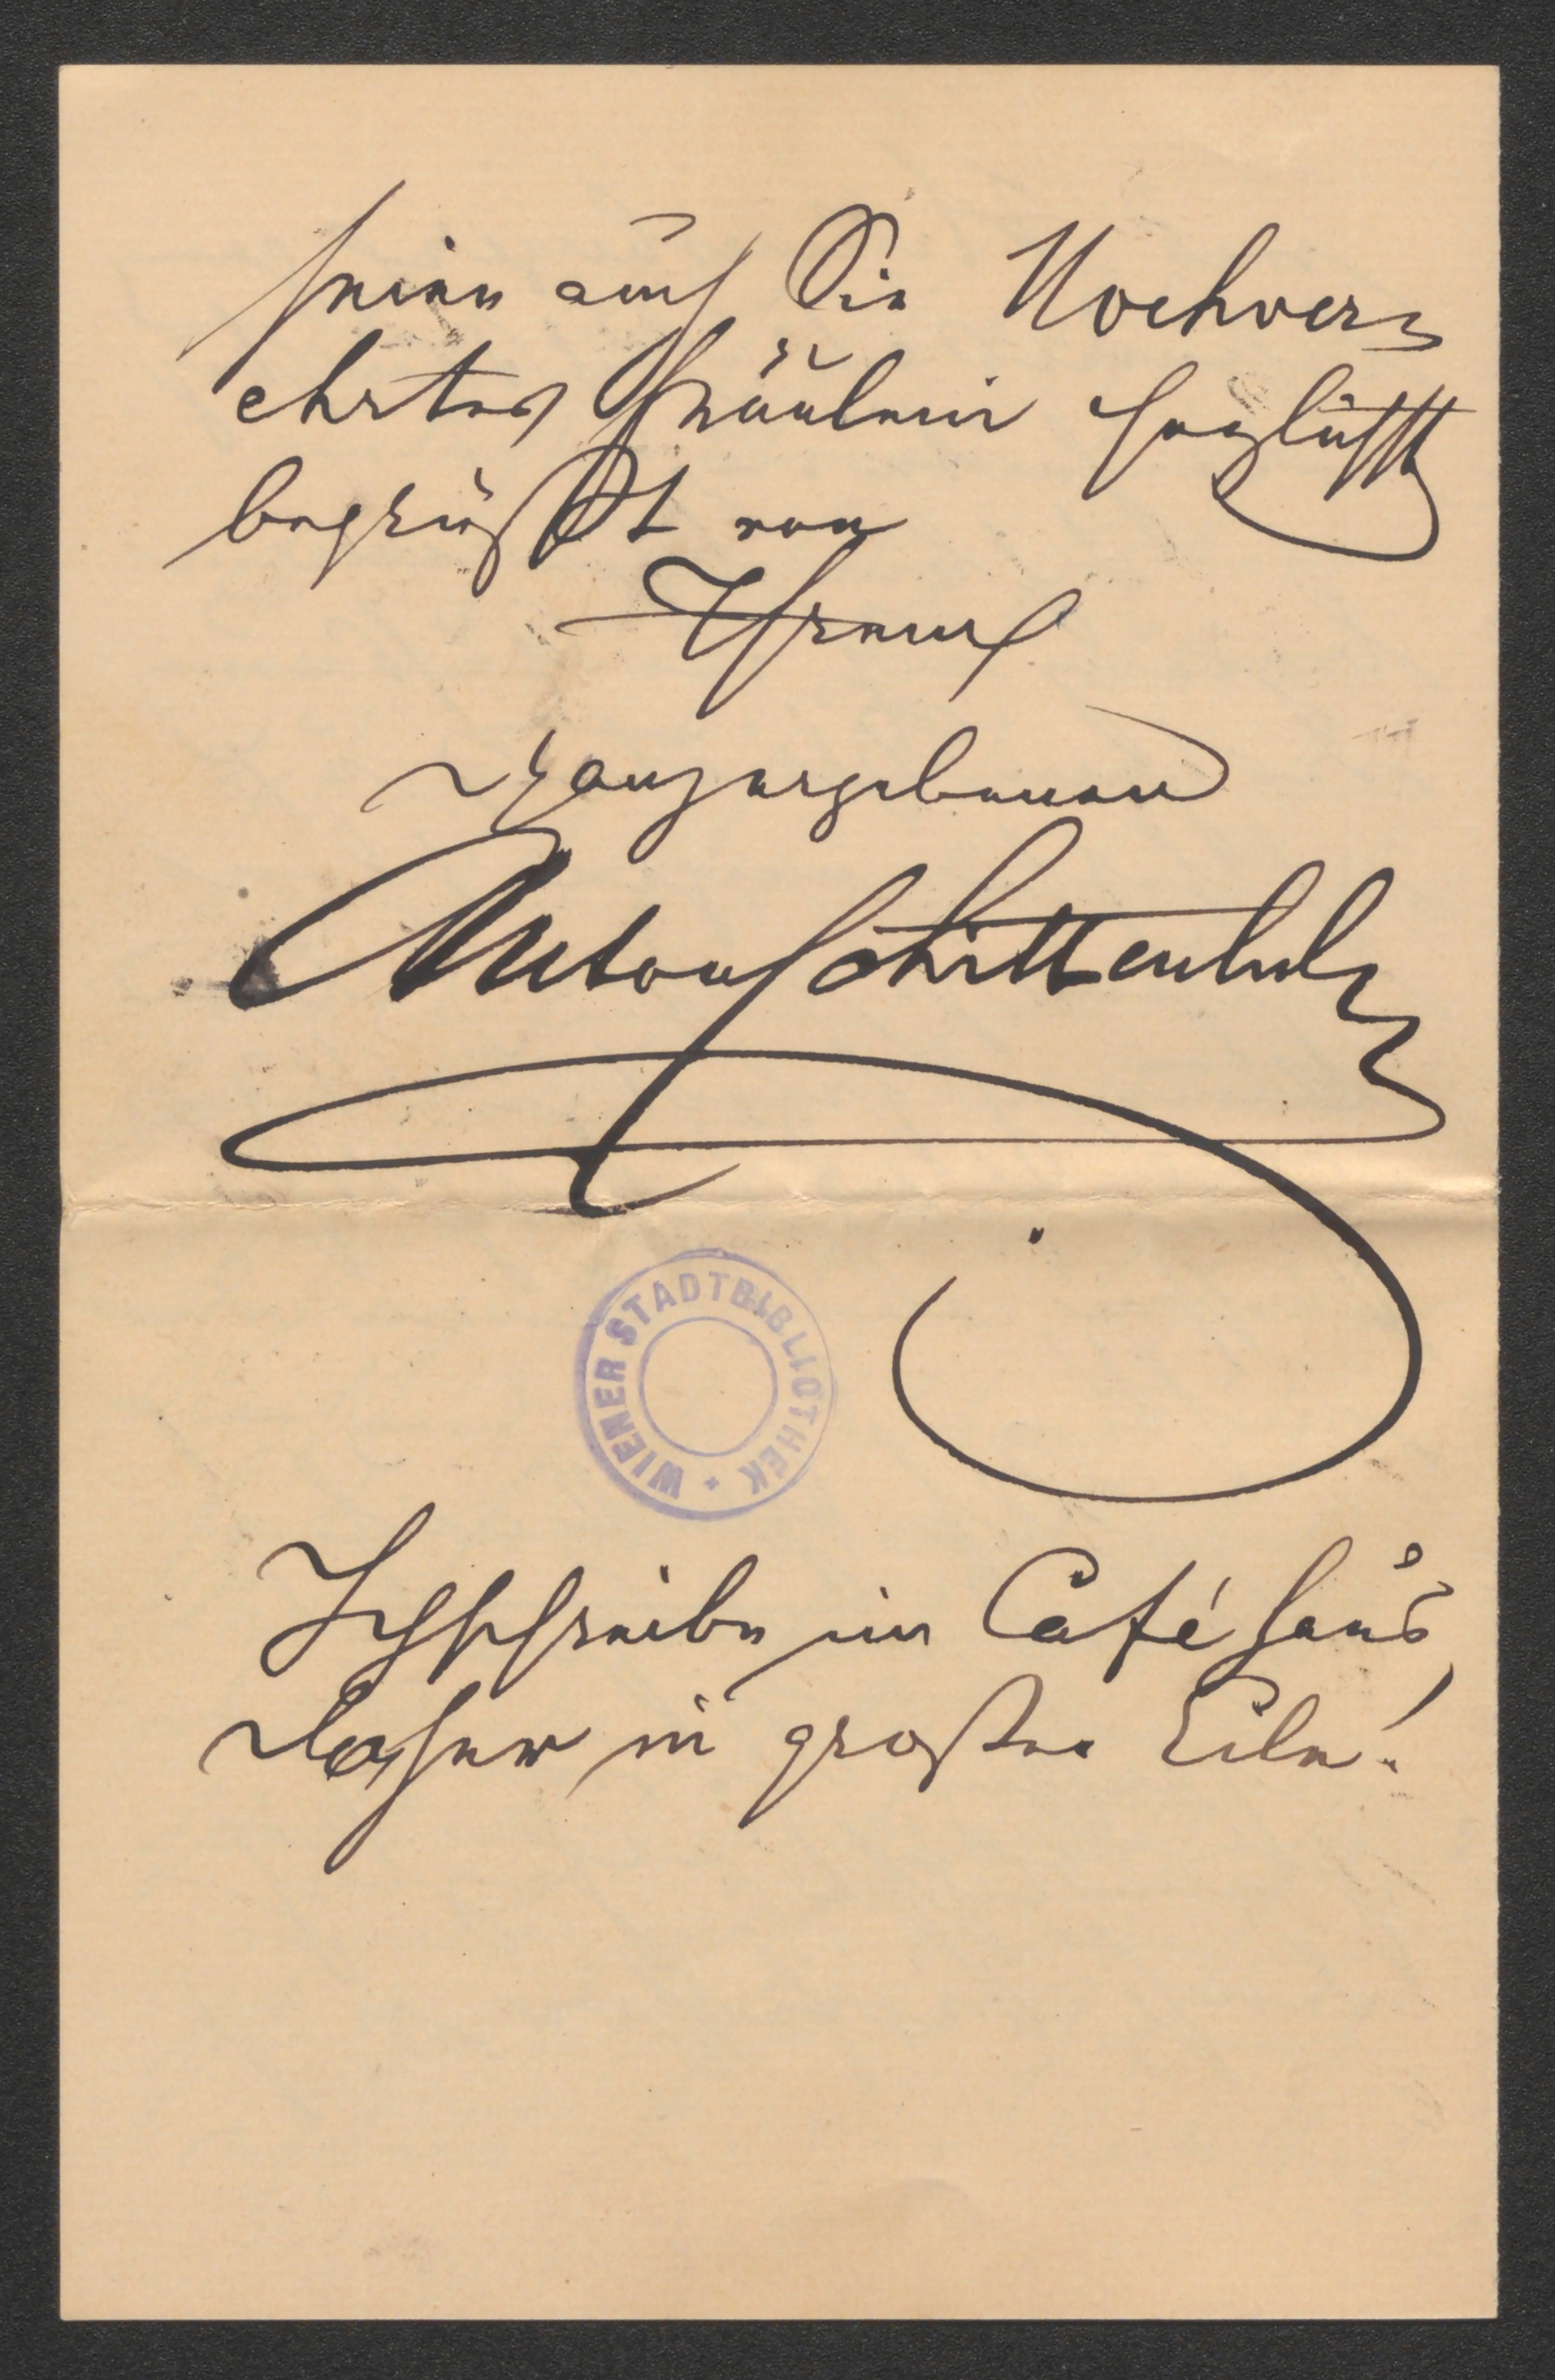 seien auch Sie Hochver=
ehrtes Fräulein herzlichst
begrüßt von
Ihrem
ganzergebenen
Anton Schittenhelm
WIENER STADTBIBLIOTHEK
Ich schreibe im Caféhaus,
daher in großer Eile!